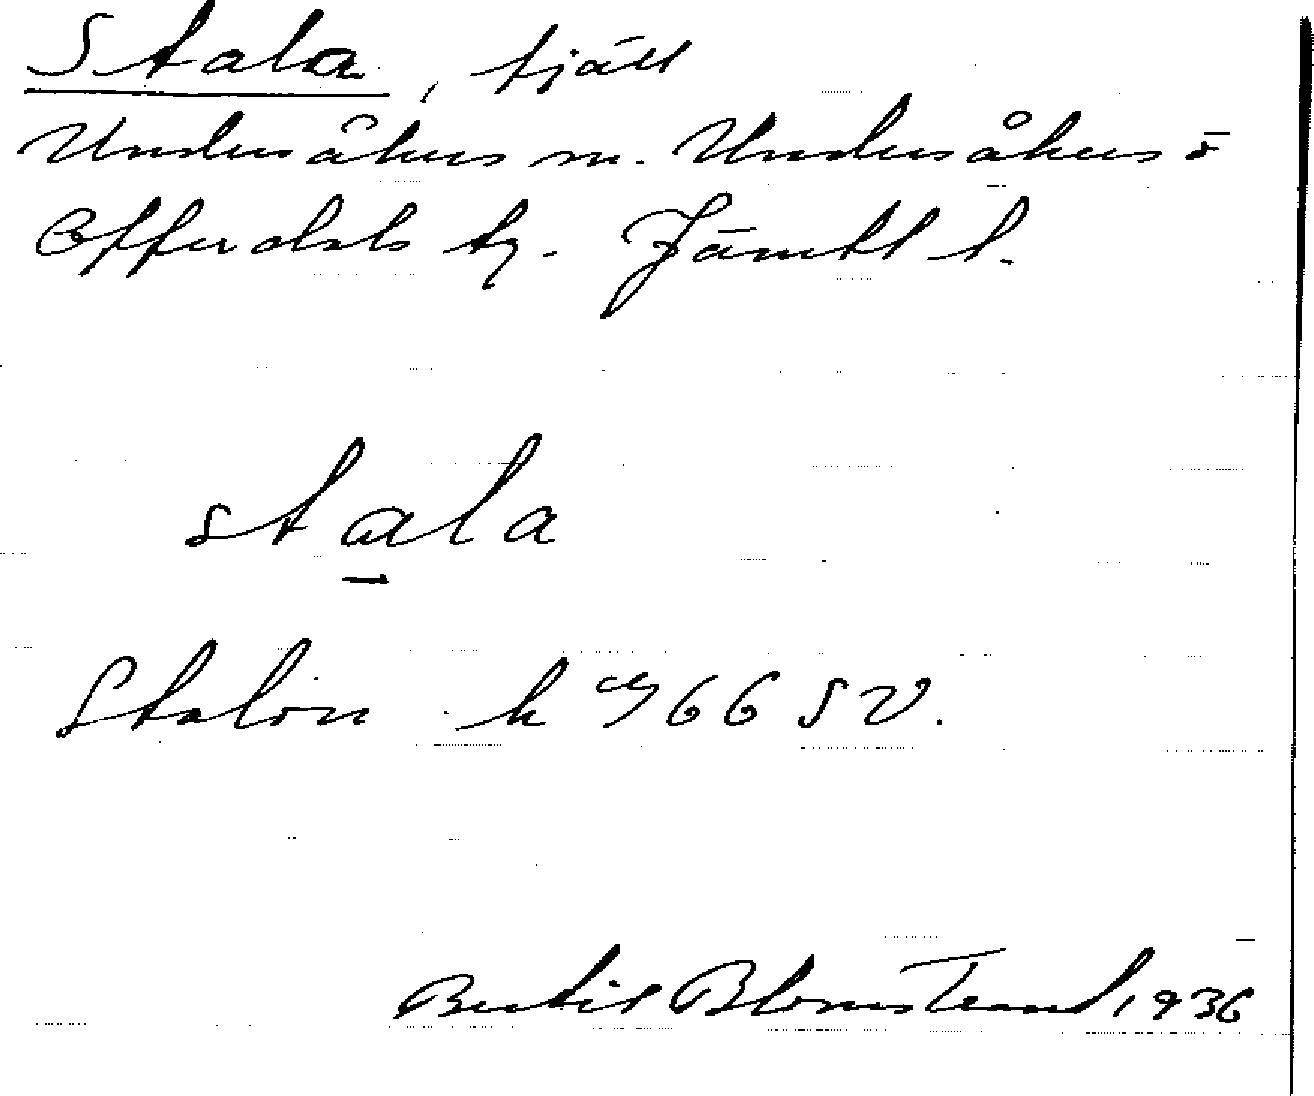 Stala, fjäll
Undersåkers sn. Undersåkers o
Offerdals tg. Jämtl l.
stala
Stalon k 966 SV.
Bertil Blomstrand 1936